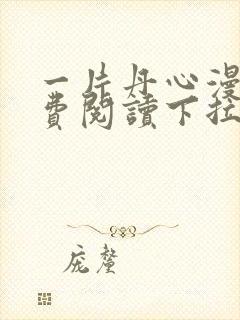 一片丹心漫
費閱讀下拉
庞鳌